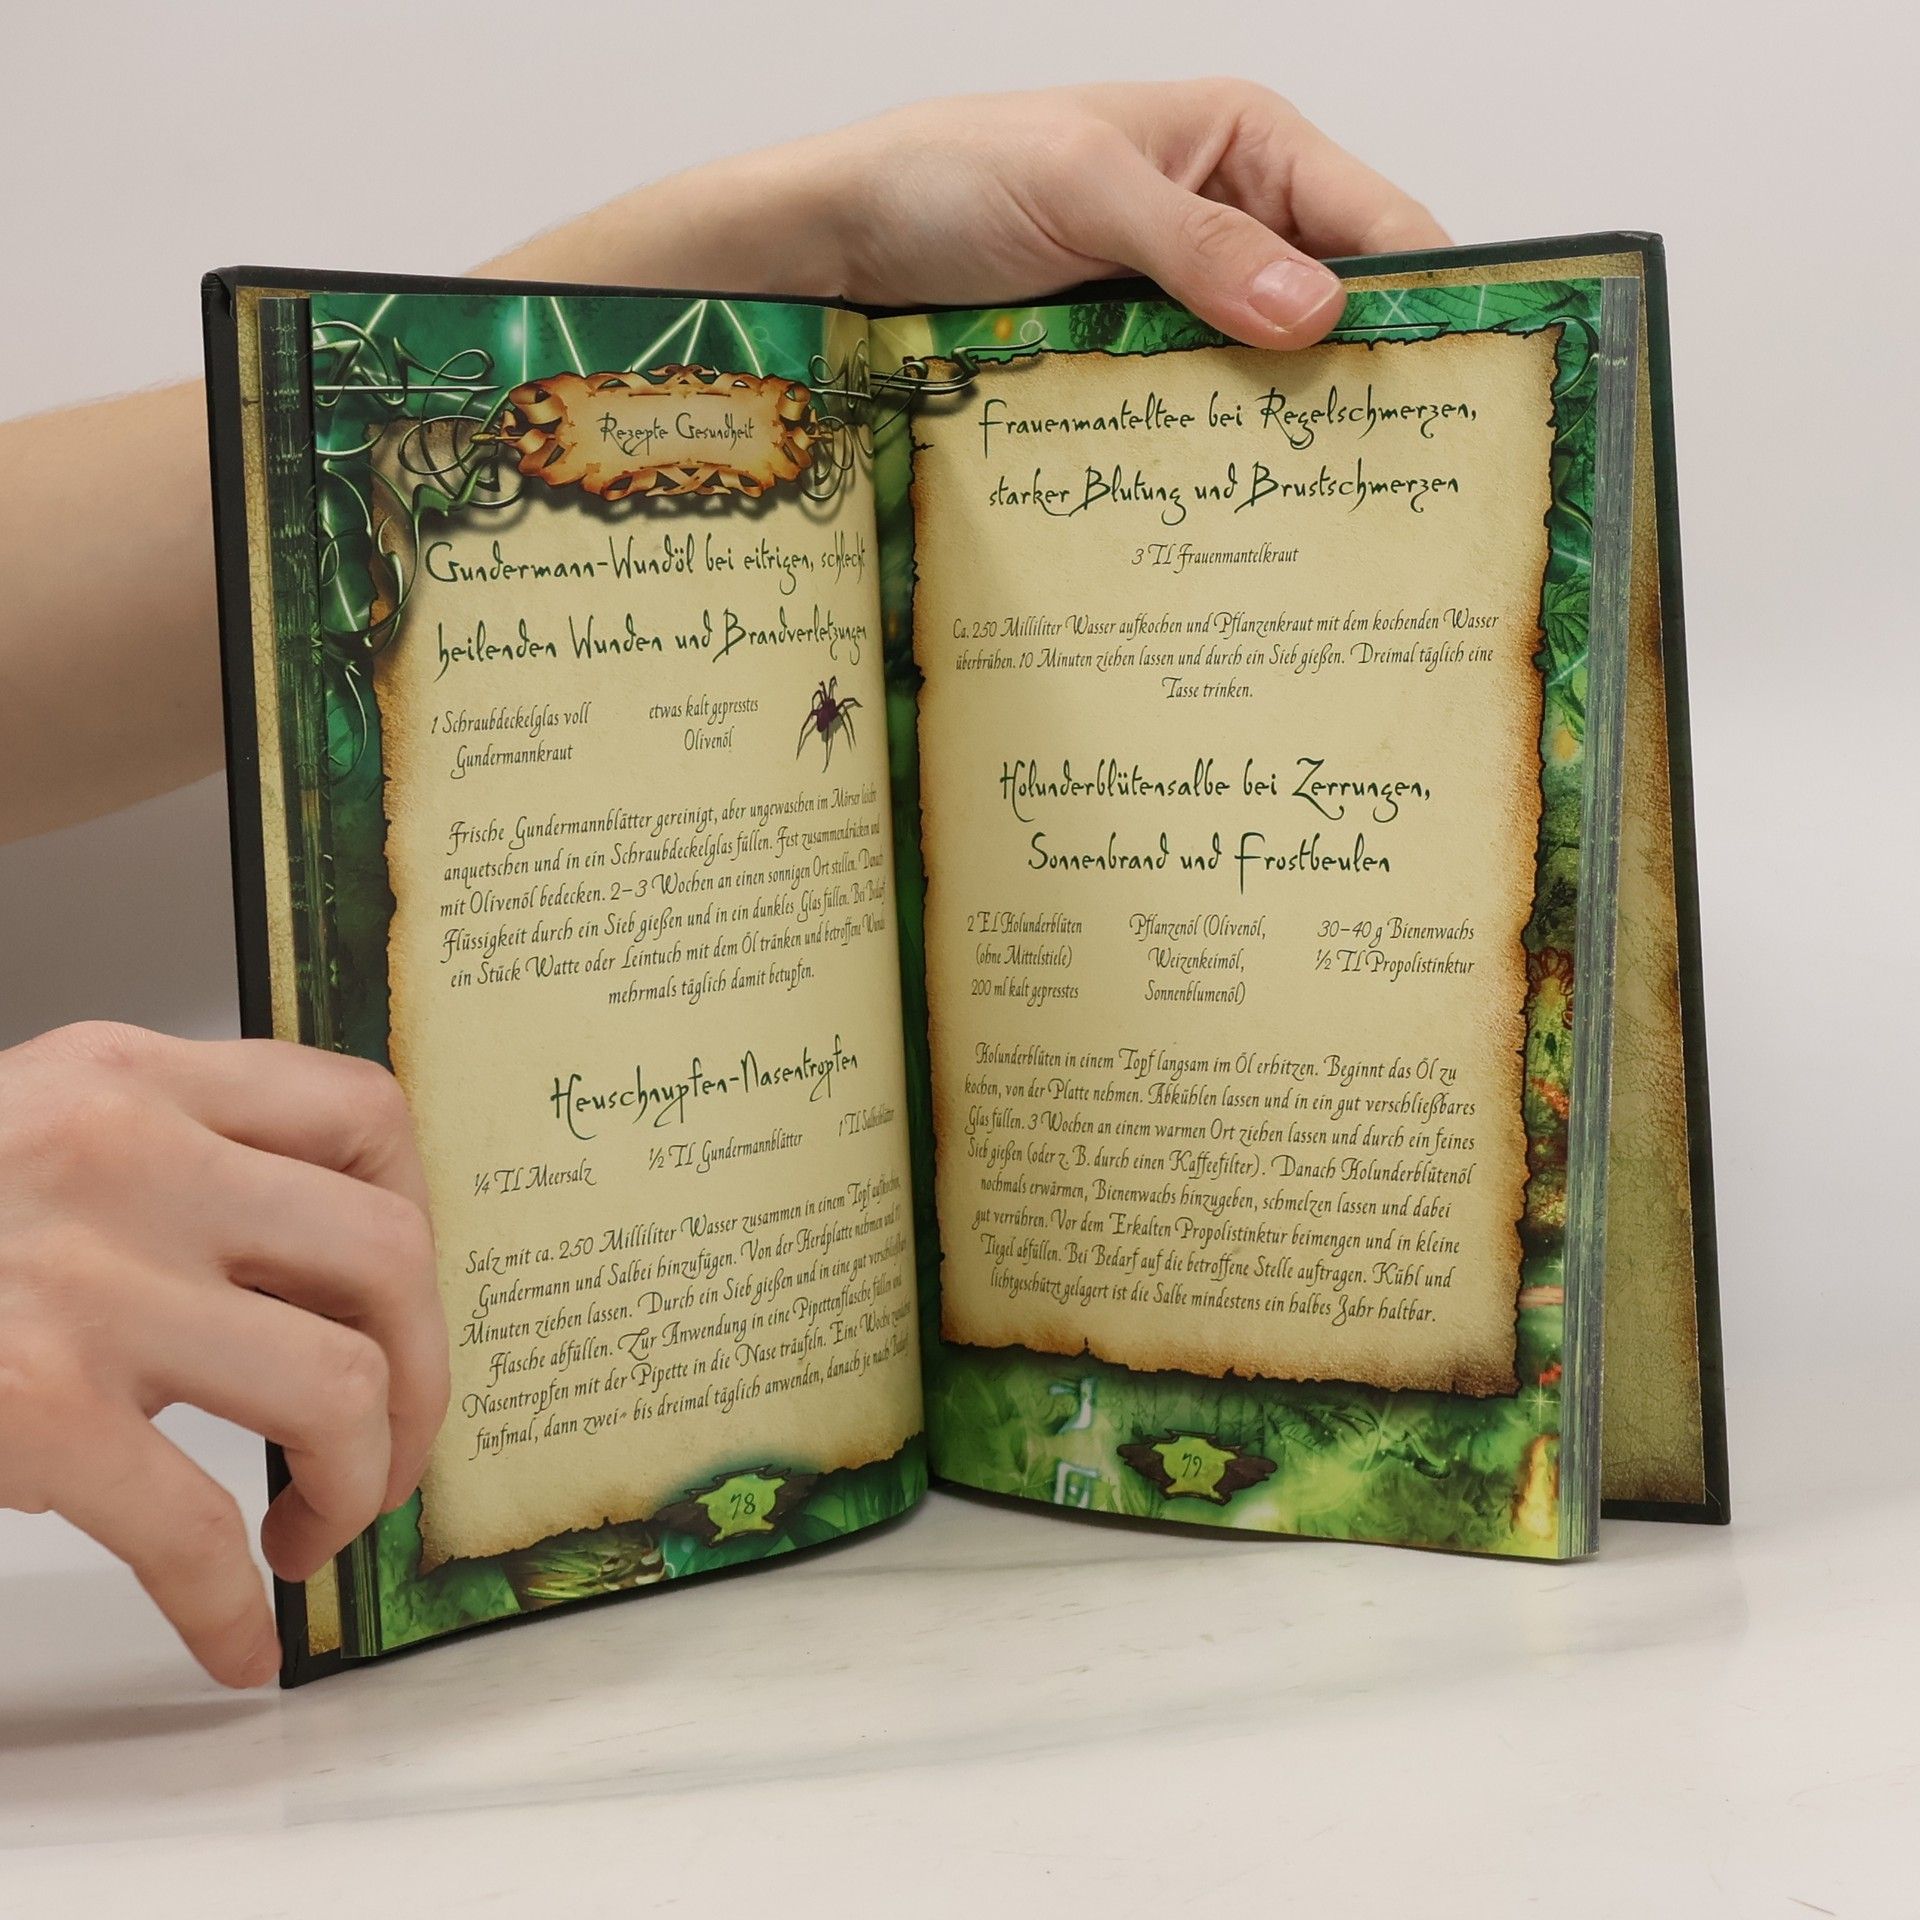 Rezepte Gesundheit
Gundermann-Wundöl bei eitrigen, schlecht
heilenden Wunden und Brandverletzungen
1 Schraubdeckelglas voll
Gundermannkraut
etwas kalt gepresstes
Olivenöl
Frische Gundermannblätter gereinigt, aber ungewaschen im Mörser leicht
anquetschen und in ein Schraubdeckelglas füllen. Fest zusammendrücken und
mit Olivenöl bedecken. 2–3 Wochen an einen sonnigen Ort stellen. Danach
Flüssigkeit durch ein Sieb gießen und in ein dunkles Glas füllen. Bei Bedarf
ein Stück Watte oder Leintuch mit dem Öl tränken und betroffene Wunde
mehrmals täglich damit betupfen.
Heuschnupfen-Nasentropfen
¼ TL Meersalz
½ TL Gundermannblätter
1 TL Salbeiblätter
Salz mit ca. 250 Milliliter Wasser zusammen in einem Topf aufkochen,
Gundermann und Salbei hinzufügen. Von der Herdplatte nehmen und
Minuten ziehen lassen. Durch ein Sieb gießen und in eine gut verschließbare
Flasche abfüllen. Zur Anwendung in eine Pipettenflasche füllen und
Nasentropfen mit der Pipette in die Nase träufeln. Eine Woche
fünfmal, dann zwei- bis dreimal täglich anwenden, danach je nach Bedarf.
78
Frauenmanteltee bei Regelschmerzen,
starker Blutung und Brustschmerzen
3 TL Frauenmantelkraut
Ca. 250 Milliliter Wasser aufkochen und Pflanzenkraut mit dem kochenden Wasser
überbrühen. 10 Minuten ziehen lassen und durch ein Sieb gießen. Dreimal täglich eine
Tasse trinken.
Holunderblütensalbe bei Zerrungen,
Sonnenbrand und Frostbeulen
2 EL Holunderblüten
(ohne Mittelstiele)
200 ml kalt gepresstes
Pflanzenöl (Olivenöl,
Weizenkeimöl,
Sonnenblumenöl)
30–40 g Bienenwachs
½ TL Propolistinktur
Holunderblüten in einem Topf langsam im Öl erhitzen. Beginnt das Öl zu
kochen, von der Platte nehmen. Abkühlen lassen und in ein gut verschließbares
Glas füllen. 3 Wochen an einem warmen Ort ziehen lassen und durch ein feines
Sieb gießen (oder z. B. durch einen Kaffeefilter). Danach Holunderblütenöl
nochmals erwärmen, Bienenwachs hinzugeben, schmelzen lassen und dabei
gut verrühren. Vor dem Erkalten Propolistinktur beimengen und in kleine
Tiegel abfüllen. Bei Bedarf auf die betroffene Stelle auftragen. Kühl und
lichtgeschützt gelagert ist die Salbe mindestens ein halbes Jahr haltbar.
79